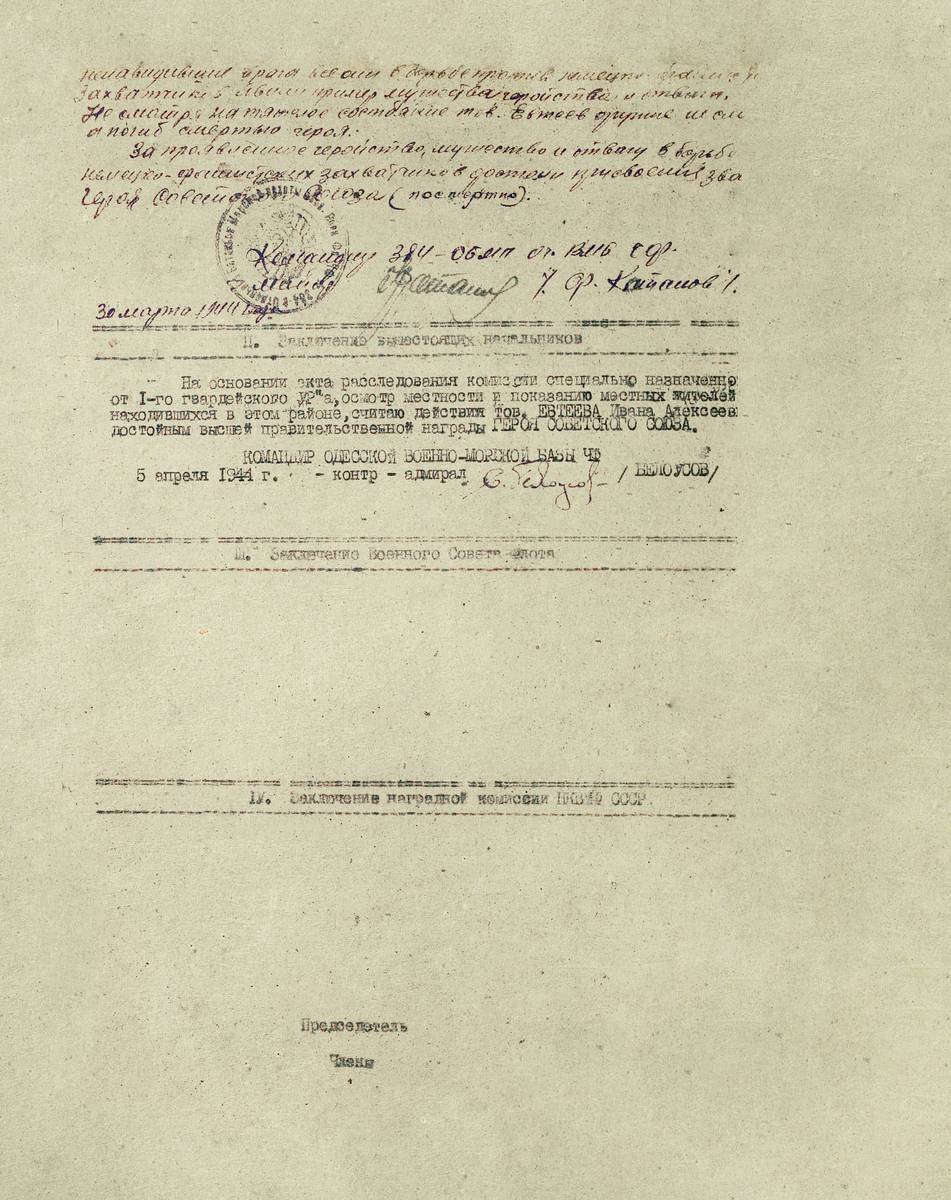 ненавидившие врага все они в борьбе против немецко
захватчиков явили пример мужества геройства и отваги.
Не смотря на тяжелое состояние тов. Евтеев оружие
а погиб смертью героя.
За проявленное геройство, мужество и отвагу в борьбе
немецко-фашистских захватчиков достоин присвоения зва
Героя Советского Союза (посмертно).
Командир 384-ОБМП
Майор / Котанов /.
30 марта 1944 года
II. Заключение вышестоящих начальников
На основании акта расследования комиссии специально назначенно
от I-го гвардейского УР"а, осмотр местности и показанию местных жителей
находившихся в этом районе, считаю действия тов. ЕВТЕЕВА Ивана Алексеев
достойным высшей правительственной награды ГЕРОЯ СОВЕТСКОГО СОЮЗА.
КОМАНДИР ОДЕССКОЙ ВОЕННО-МОРСКОЙ БАЗЫ ЧФ
5 апреля 1944 г. - контр - адмирал С. Белоусов / БЕЛОУСОВ/
Ш. Заключение Военного Совета Флота
IУ. Заключение наградной комиссии НКВМФ СССР.
Председатель
Члены